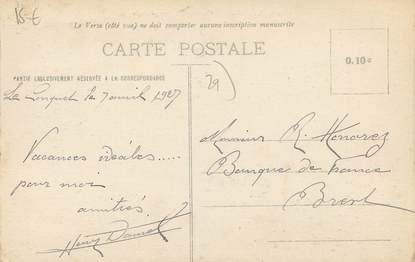 15-€
Le Verso (côté vue) ne doit comporter aucune inscription manuscrite
CARTE POSTALE
0.10c
PARTIE EXCLUSIVEMENT RÉSERVÉE A LA CORRESPONDANCE
29
Le Conquet le 7 avril 1927
Monsieur R. Henorez
Vacances idéales.....
Banque de France
pour moi
Brest
amitiés.
Henry